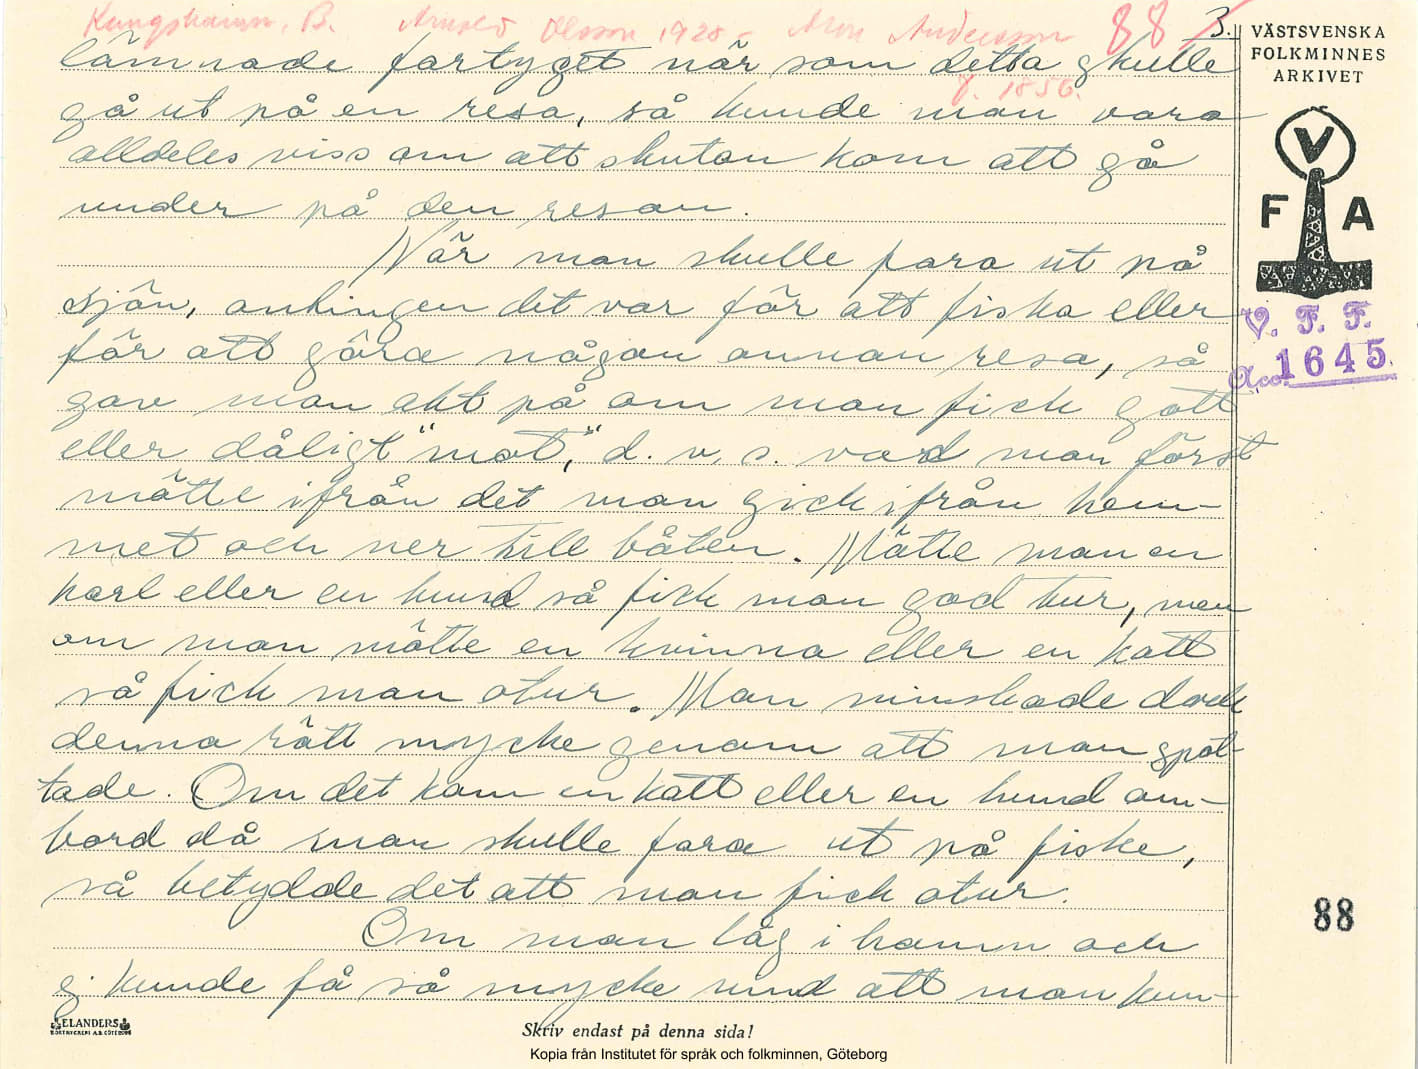 Kungshamn, B. Arnold Olsson 1928 - Alma Andersson
f. 1856.
88
3.
lämnade fartyget när som detta skulle
gå ut på en resa, så kunde man vara
alldeles viss om att skutan kom att gå
under på den resan.
När man skulle fara ut på
sjön, antingen det var för att fiska eller
för att göra någon annan resa, så
gav man akt på om man fick gott
eller dåligt "mot," d. v. s. vad man först
mötte ifrån det man gick ifrån hem-
met och ner till båten. Mötte man en
karl eller en hund så fick man god tur, men
om man mötte en kvinna eller en katt
så fick man otur. Man minskade dock
denna rätt mycke genom att man spot-
tade. Om det kom en katt eller en hund om-
bord då man skulle fara ut på fiske,
så betydde det att man fick otur.
Om man låg i hamn och
ej kunde få så mycke vind att man kun-
VÄSTSVENSKA
FOLKMINNES
ARKIVET
V
F A
V. F. F.
Acc. 1645.
88
ELANDERS
BOKTRYCKERI A.B. GÖTEBORG
Skriv endast på denna sida!
Kopia från Institutet för språk och folkminnen, Göteborg